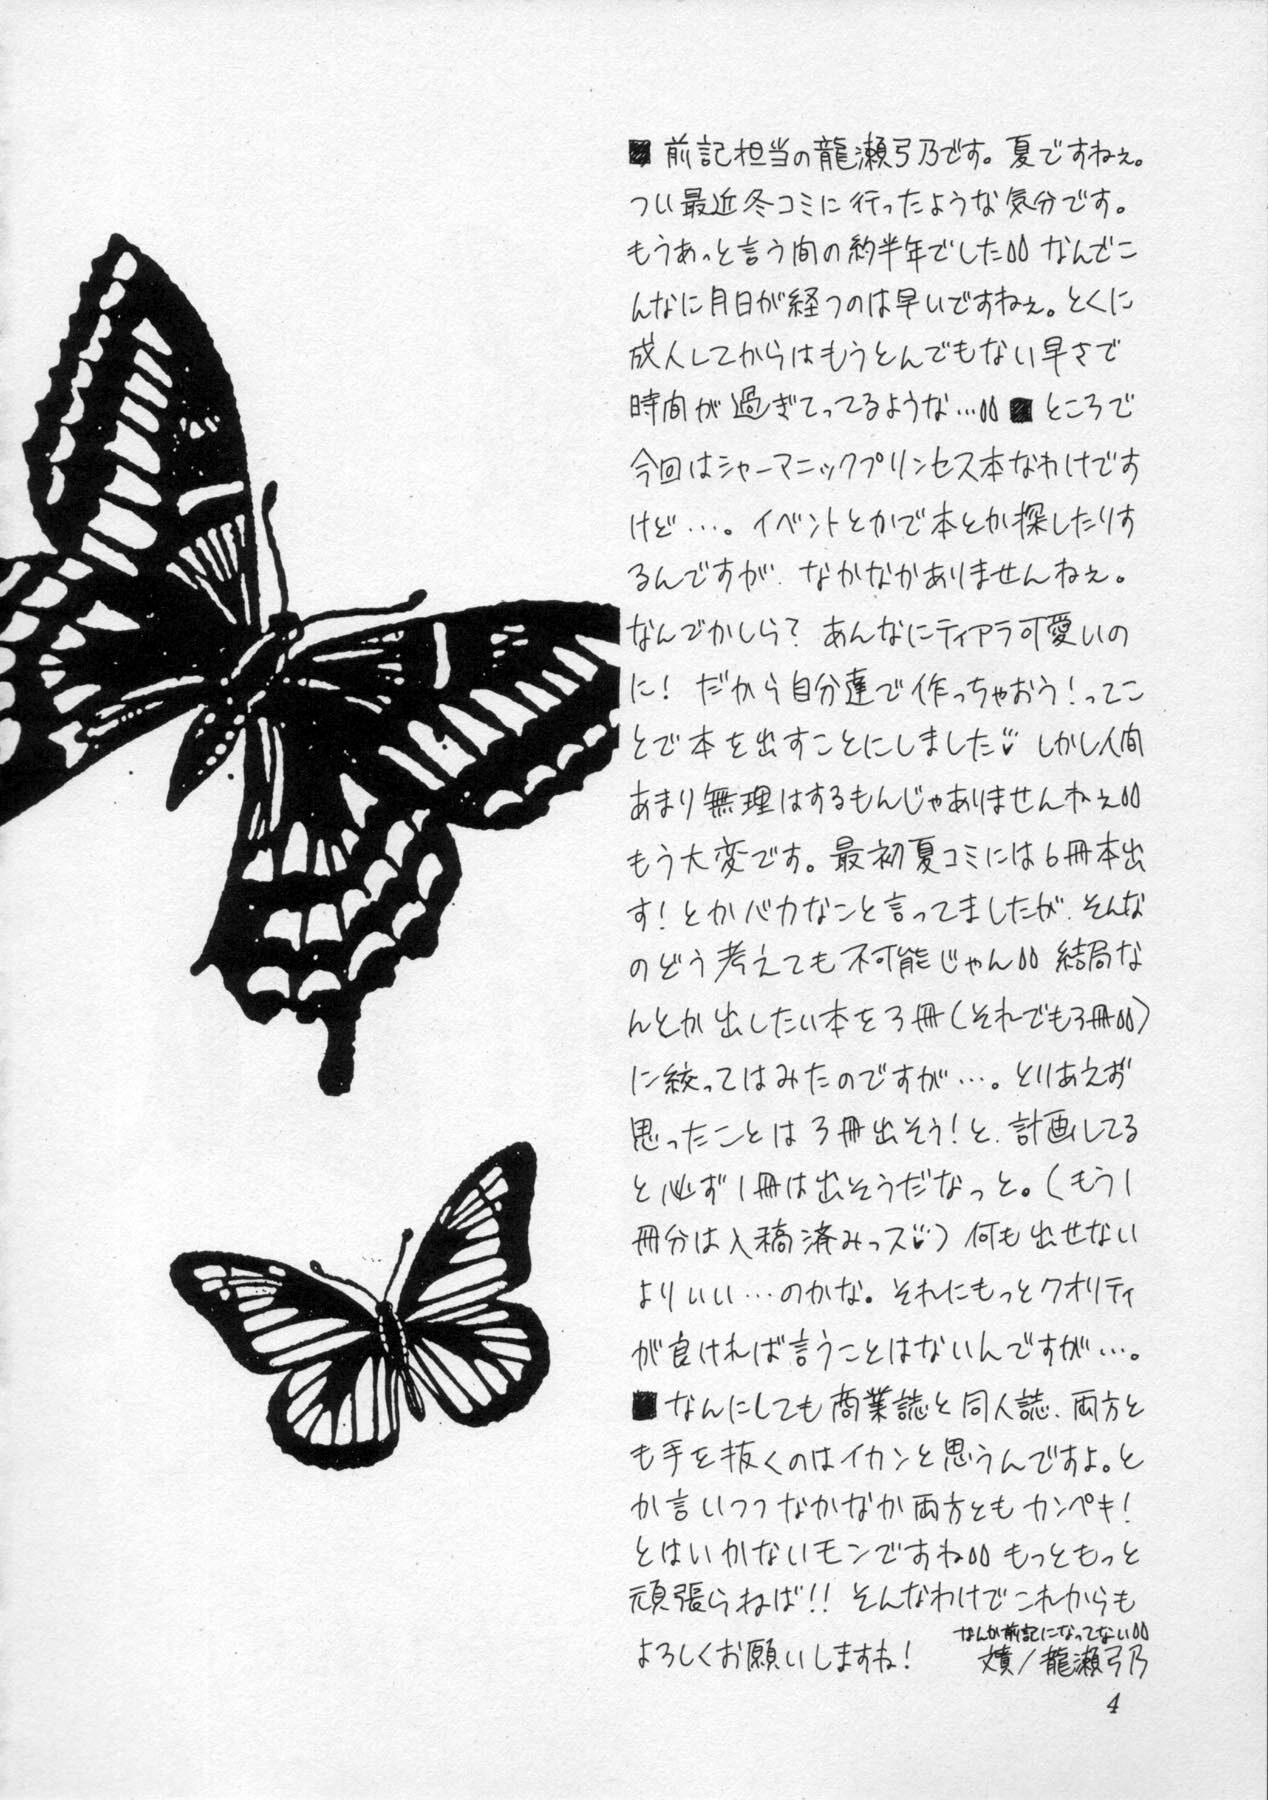 ■ 前記担当の龍瀬弓乃です。夏ですねぇ。
つい最近冬コミに行ったような気分です。
もうあっと言う間の約半年でした なんでこ
んなに月日が経つのは早いですねぇ。とくに
成人してからはもうとんでもない早さで
時間が過ぎてってるような… ■ ところで
今回はシャーマニックプリンセス本なわけです
けど…。イベントとかで本とか探したりす
るんですが、なかなかありませんねぇ。
なんでかしら? あんなにティアラ可愛いの
に! だから自分達で作っちゃおう!ってこ
とで本を出すことにしました♡ しかし人間
あまり無理はするもんじゃありませんねぇ
もう大変です。最初夏コミには6冊本出
す!とかバカなこと言ってましたが、そんな
のどう考えても不可能じゃん 結局な
んとか出したい本を3冊(それでも3冊)
に絞ってはみたのですが…。とりあえず
思ったことは3冊出そう!と、計画してる
と必ず1冊は出そうだなっと。(もう1
冊分は入稿済みっス♡) 何も出せない
よりいい…のかな。それにもっとクオリティ
が良ければ言うことはないんですが…。
■ なんにしても商業誌と同人誌、両方と
も手を抜くのはイカンと思うんですよ。と
か言いつつなかなか両方ともカンペキ!
とはいかないモンですね もっともっと
頑張らねば!! そんなわけでこれからも
よろしくお願いしますね!
なんか前記になってない
/龍瀬弓乃
4